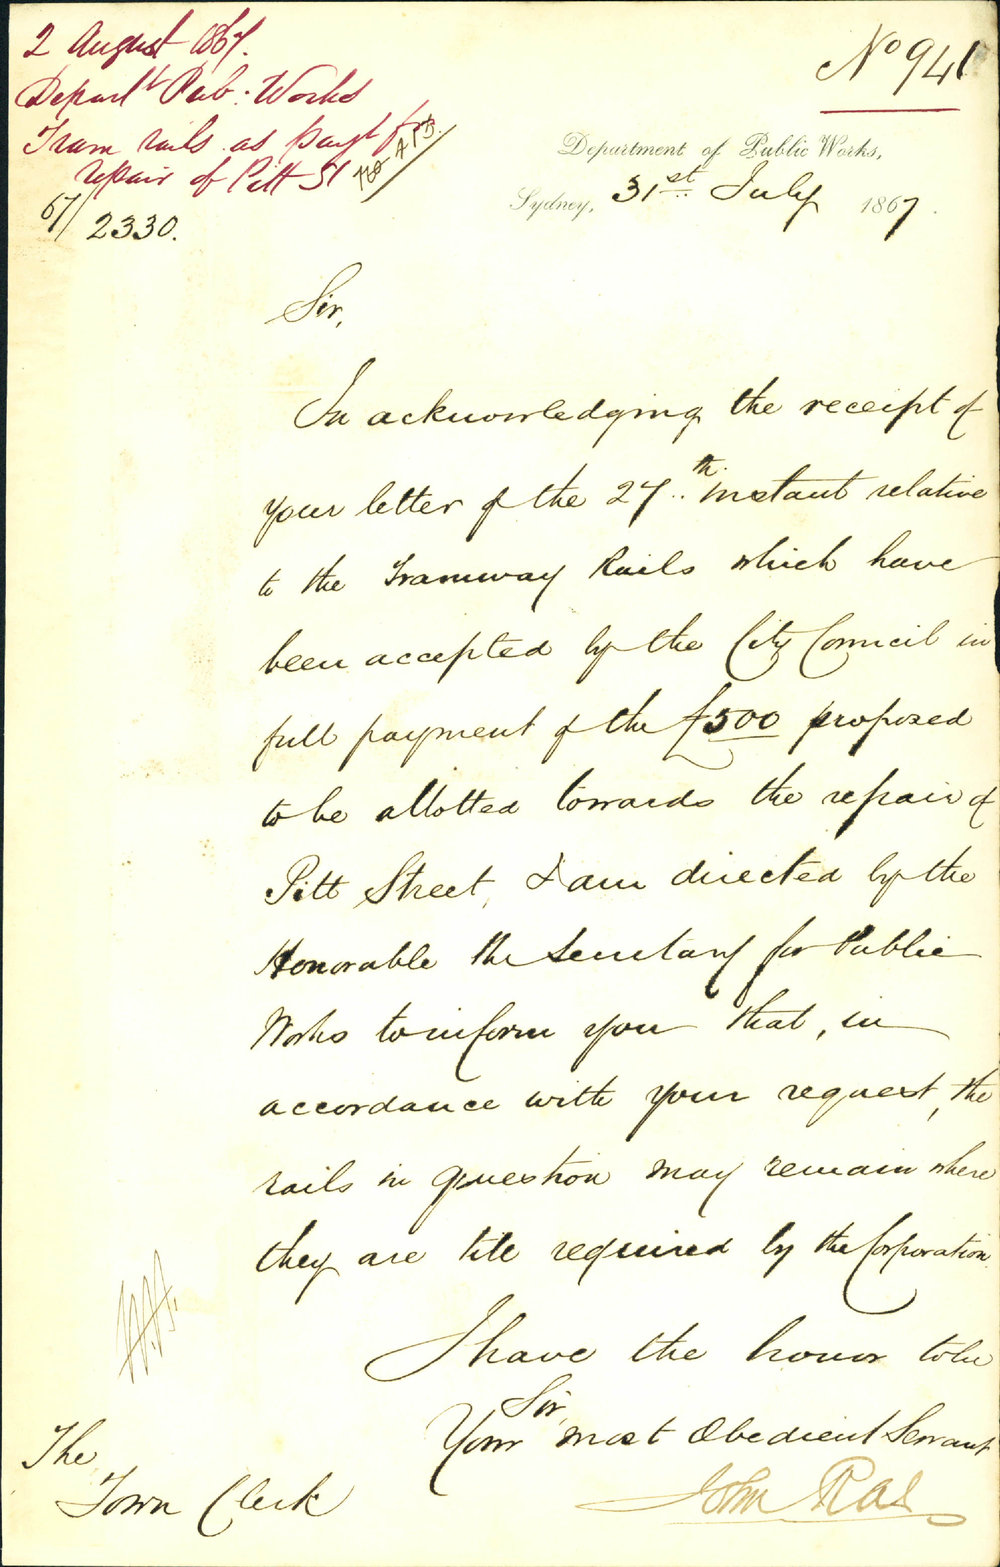 2 August 1867.
Depart't Pub. Works
Tram rails as payt for
repair of Pitt St
67/2330.
No 941
Department of Public Works,
Sydney, 31st July 1867.
Sir,
In acknowledging the receipt of
your letter of the 27th instant relative
to the Tramway Rails which have
been accepted by the City Council in
full payment of the £500 proposed
to be allotted towards the repair of
Pitt Street, I am directed by the
Honorable the Secretary for Public
Works to inform you that, in
accordance with your request, the
rails in question may remain where
they are till required by the Corporation.
I have the honor to be
Sir,
Your most Obedient Servant
John Rae
The
Town Clerk